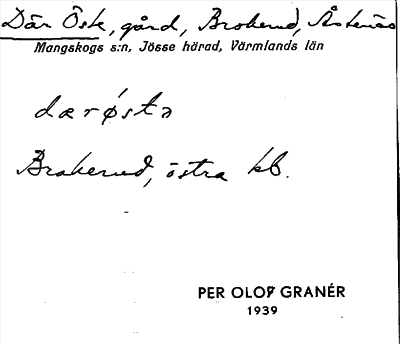 Där Öste, gård, Brokerud, Åstenäs
Mangskogs s:n, Jösse härad, Värmlands län
dærøstə
Brokerud, östra kb.
PER OLOF GRANÉR
1939